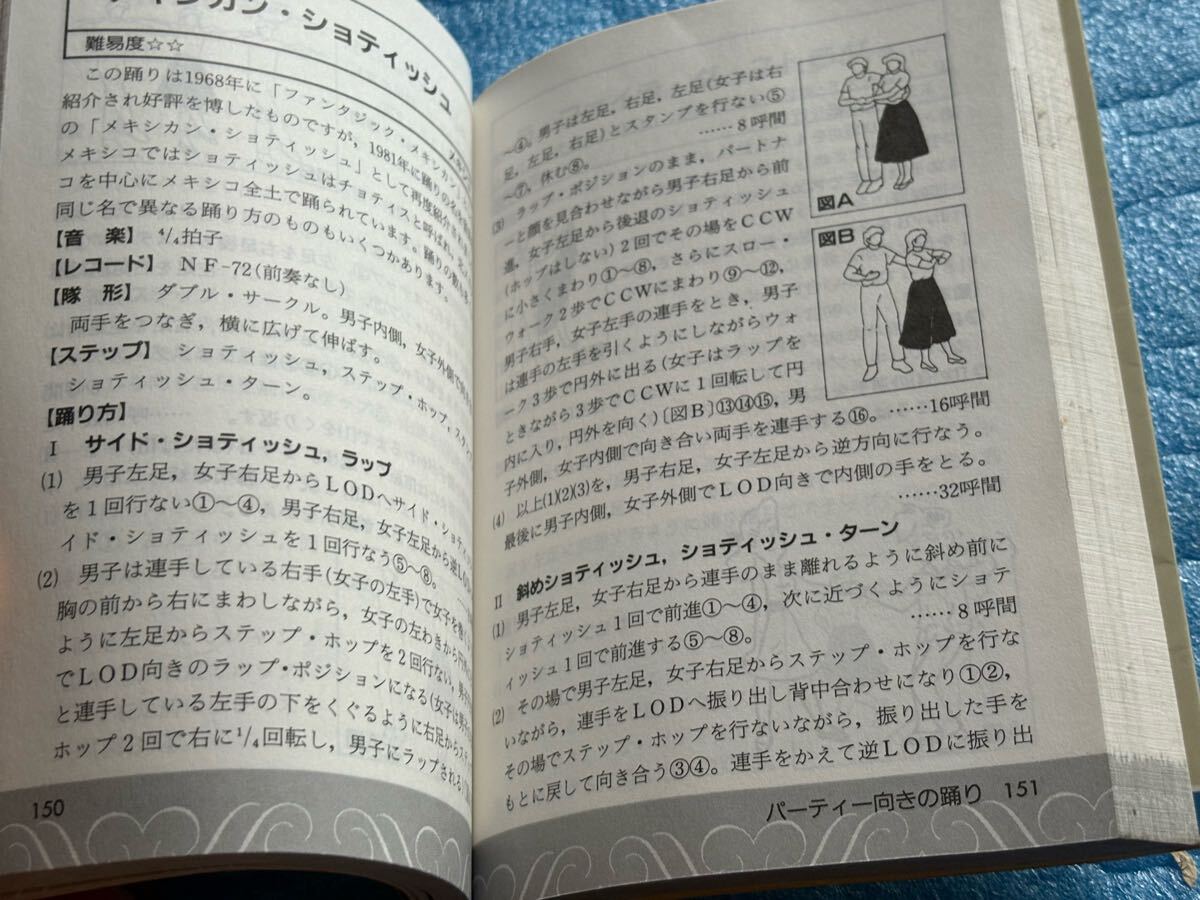 メキシカン・ショティッシュ
難易度☆☆
この踊りは1968年に「ファンタジック・メキシカン
紹介され好評を博したものですが，1981年に踊りの
の「メキシカン・ショティッシュ」として再度紹介され
メキシコではショティッシュはチョティスと呼ばれ，
コを中心にメキシコ全土で踊られています。踊りの
同じ名で異なる踊り方のものもいくつかあります。
【音　楽】 4/4拍子
【レコード】 NF-72(前奏なし)
【隊　形】 ダブル・サークル。男子内側，女子外側で
両手をつなぎ，横に広げて伸ばす。
【ステップ】 ショティッシュ，ステップ・ホップ，
ショティッシュ・ターン。
【踊り方】
Ⅰ サイド・ショティッシュ，ラップ
(1) 男子左足，女子右足からLODへサイド・ショティッ
を1回行ない①〜④，男子右足，女子左足から逆LO
イド・ショティッシュを1回行なう⑤〜⑧。
(2) 男子は連手している右手(女子の左手)で女子を
胸の前から右にまわしながら，女子の左わきから
ように左足からステップ・ホップを2回行ない，
でLOD向きのラップ・ポジションになる(女子は
と連手している左手の下をくぐるように右足から
ホップ2回で右に1/4回転し，男子にラップされる)
150
〜④。男子は左足，右足，左足(女子は右
足，左足，右足)とスタンプを行ない⑤
〜⑦，休む⑧。 ……8呼間
(3) ラップ・ポジションのまま，パートナ
ーと顔を見合わせながら男子右足から前
進，女子左足から後退のショティッシュ
(ホップはしない) 2回でその場をCCW
に小さくまわり①〜⑧，さらにスロー・
ウォーク2歩でCCWにまわり⑨〜⑫，
男子右手，女子左手の連手をとき，男子
は連手の左手を引くようにしながらウォ
ーク3歩で円外に出る(女子はラップを
ときながら3歩でCCWに1回転して円
内に入り，円外を向く)〔図B〕⑬⑭⑮，男
子外側，女子内側で向き合い両手を連手する⑯。 ……16呼間
(4) 以上(1)(2)(3)を，男子右足，女子左足から逆方向に行なう。
最後に男子内側，女子外側でLOD向きで内側の手をとる。
……32呼間
図A
図B
Ⅱ 斜めショティッシュ，ショティッシュ・ターン
(1) 男子左足，女子右足から連手のまま離れるように斜め前に
ショティッシュ1回で前進①〜④，次に近づくようにショテ
ィッシュ1回で前進する⑤〜⑧。 ……8呼間
(2) その場で男子左足，女子右足からステップ・ホップを行な
いながら，連手をLODへ振り出し背中合わせになり①②，
その場でステップ・ホップを行ないながら，振り出した手を
もとに戻して向き合う③④。連手をかえて逆LODに振り出
パーティー向きの踊り 151